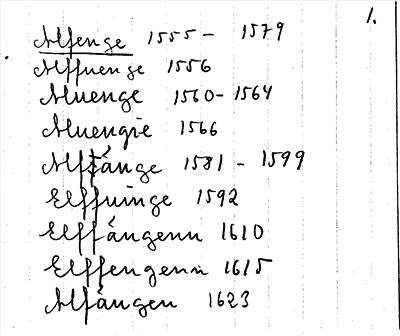 1.
Alfenge 1555 - 1579
Alffuenge 1556
Aluenge 1560 - 1564
Aluengie 1566
Alffänge 1581 - 1599
Elffuinge 1592
Elffångenn 1610
Elffengenn 1615
Alfången 1623